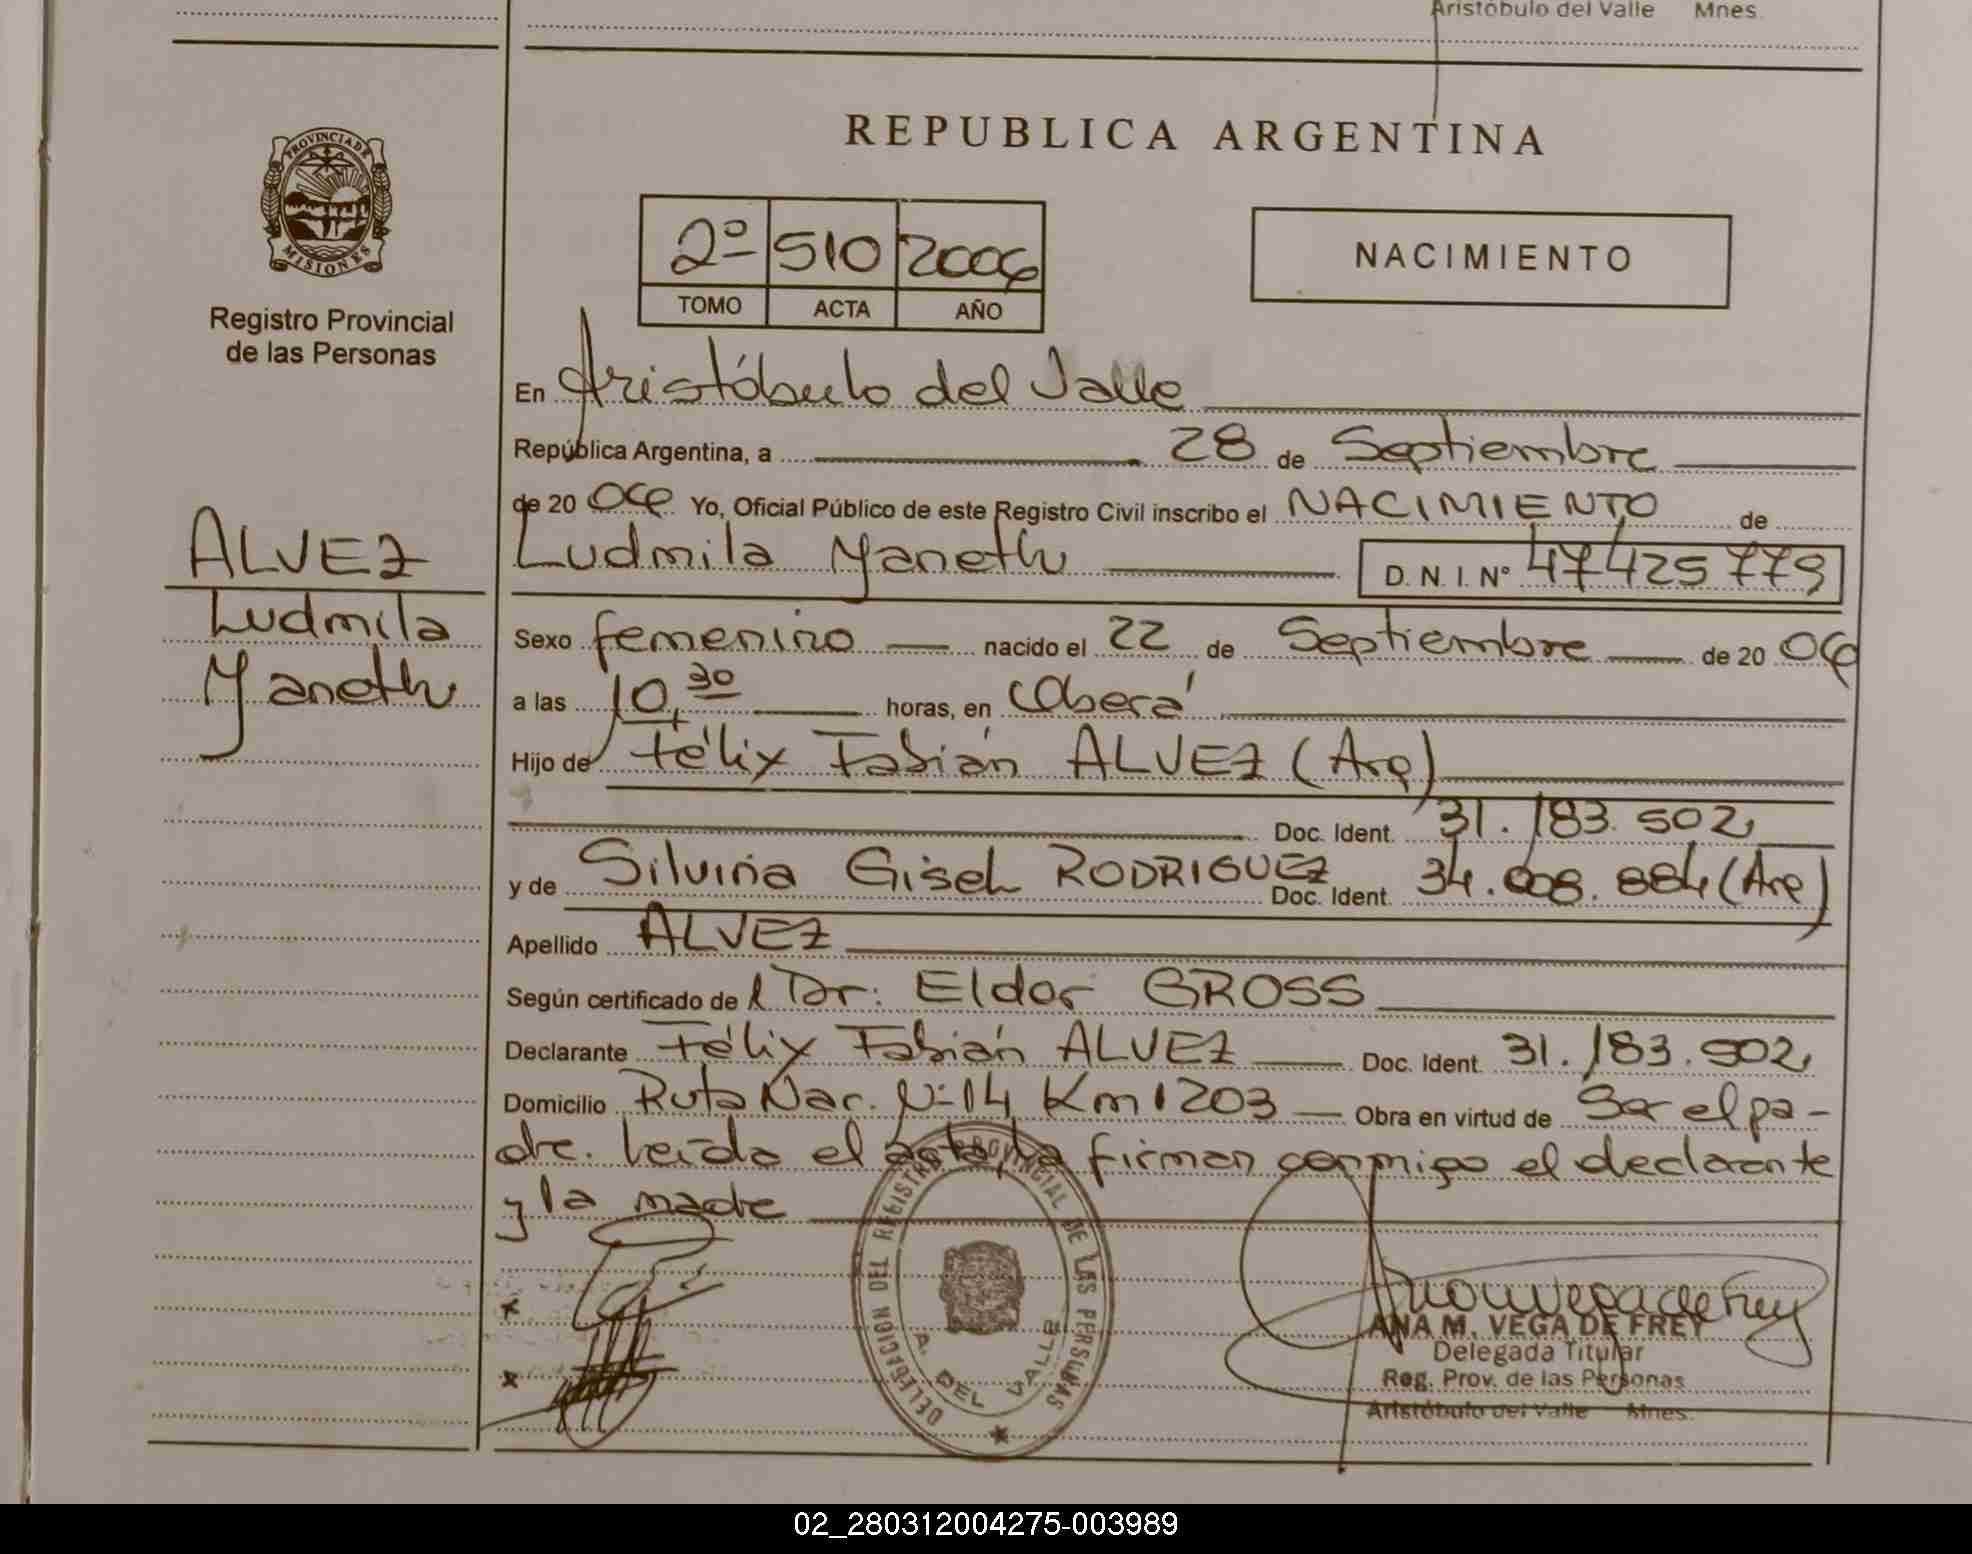 Aristóbulo del Valle Mnes.
PROVINCIA DE
MISIONES
Registro Provincial
de las Personas
REPUBLICA ARGENTINA
2º 510 2006
TOMO ACTA AÑO
NACIMIENTO
En Aristóbulo del Valle
República Argentina, a 28 de Septiembre
de 20 06 Yo, Oficial Público de este Registro Civil inscribo el NACIMIENTO de
ALVEZ
Ludmila
Yaneth
Ludmila Yaneth D. N. I. Nº 47425779
Sexo femenino nacido el 22 de Septiembre de 20 06
a las 10,30 horas, en Oberá
Hijo de Félix Fabián ALVEZ (Arg)
Doc. Ident. 31.183.502
y de Silvina Gisel RODRIGUEZ Doc. Ident. 34.008.884 (Arg)
Apellido ALVEZ
Según certificado de l Dr. Eldor GROSS
Declarante Félix Fabián ALVEZ Doc. Ident. 31.183.502
Domicilio Ruta Nac. Nº 14 Km 1203 Obra en virtud de Ser el pa-
dre. Leída el acta, la firman conmigo el declarante
y la madre
DELEGACION DEL REGISTRO PROVINCIAL DE LAS PERSONAS
A. DEL VALLE
x
x
ANA M. VEGA DE FREY
Delegada Titular
Reg. Prov. de las Personas
Aristóbulo del Valle Mnes.
02_280312004275-003989